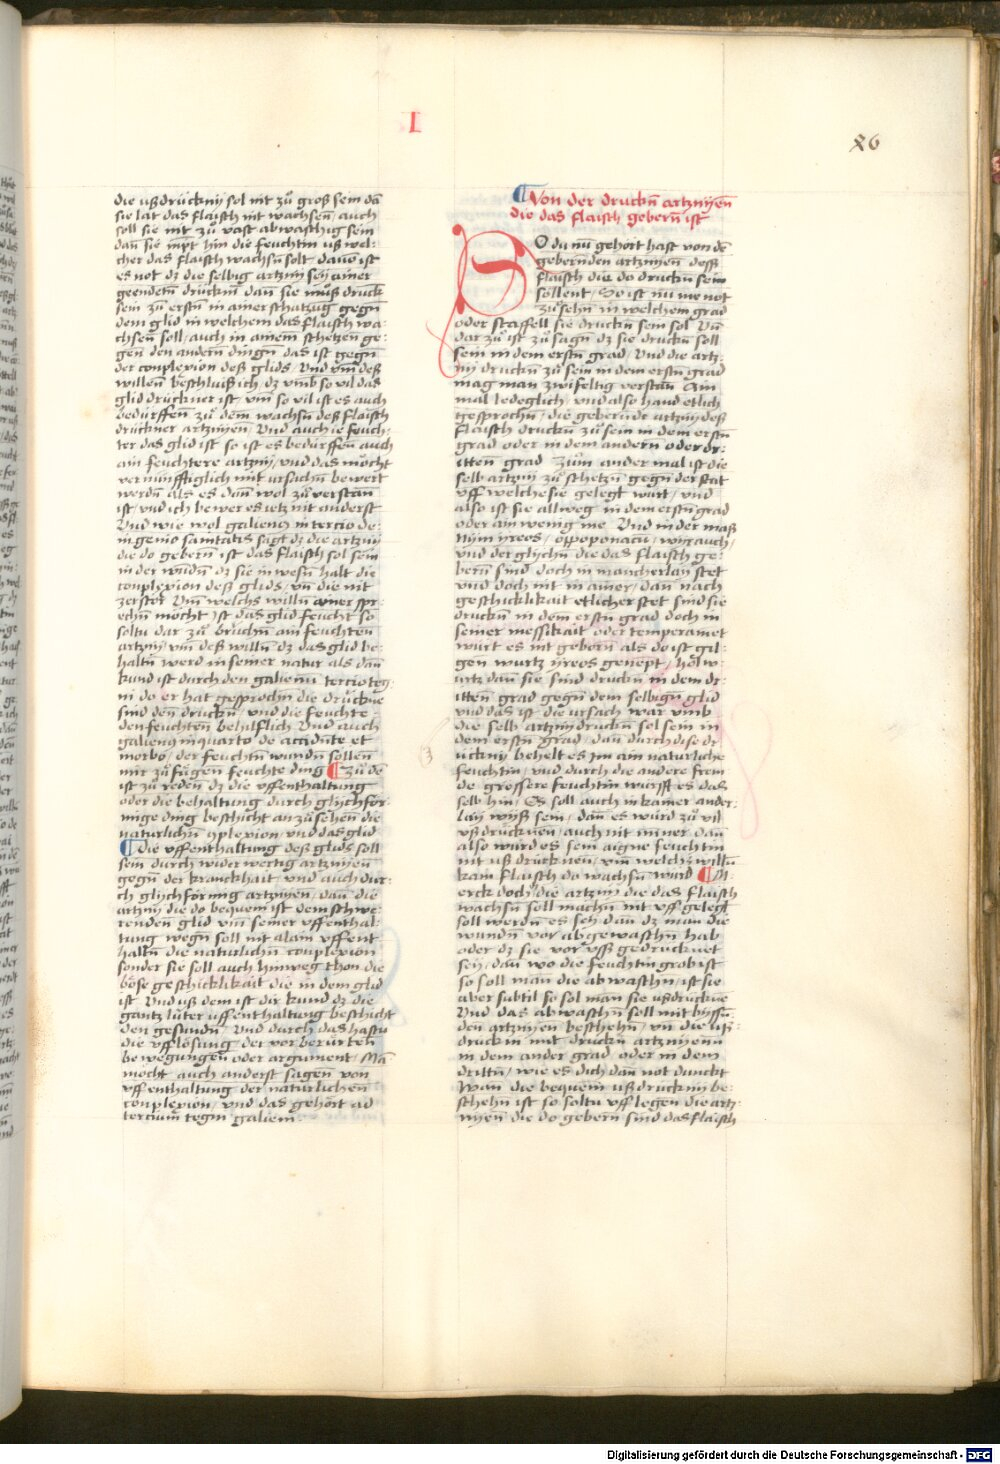 I
86
die ußdrücknij sol nit zů groß sein dā
sie lat das flaisch nit wachsen̄ / auch
soll sie nit zů vast abwaschig sein
dan̄ sie nipt hin die feuchtin uß wel-
cher das flaisch wachsn̄ solt dauō ist
es not dz die selbig artznij seij ainer
geendetn̄ drückin̄ dan̄ sie muß druck
sein zů erstn̄ in ainer schatzūg gegn̄
dem glid in welchem das flaisch wa-
chsen̄ soll / auch in ainem schetzen̄ ge-
gen̄ den andern dingn̄ das ist gegn̄
der complexion deß glids / Und vm̄ deß
willen̄ beschluiß ich dz vmb so vil das
glid drückner ist / vm̄ so vil ist es auch
bedürffen̄ zů dem wachsn̄ deß flaisch
drückner artznijen / Und auch ie feuch-
ter das glid ist so ist es bedürffen̄ auch
ain feuchtere artznij / vnd das möcht
vernünfftiglich mit ursachn̄ bewert
werdn̄ als es dan̄ wol zů verstan̄
ist / vnd ich bewer es ietz nit anderst
Und wie wol galienus in tercio de
ingenio sanitatis sagt dz die artznij
die do gebern̄ ist das flaisch sol sein
in der wūdn̄ dz sie in wesn̄ halt die
complexion deß glids / vn̄ die nit
zerstör Vm̄ welchs willn̄ ainer spr-
echn̄ möcht ist das glid feucht so
soltu dar zů brüchn̄ ain feuchten̄
artznij vm̄ deß willn̄ dz das glid be-
haltn̄ werd in seiner natur als dan̄
kund ist durch den galienū tercio teg-
ni do er hat gesprochn̄ die drückne
sind den̄ druckn̄ vnd die feuchte
den feuchten̄ behilflich Und auch
galienus in quarto de accidente et
morbo / der feuchtn̄ wundn̄ sollen̄
wir zů fügen feuchte ding ¶ Zů dē
ist zů reden̄ dz die vffenthaltung
oder die behaltung durch glijchför-
mige ding beschicht an zů sehen̄ die
naturlichn̄ 9plexion vnd das glid
¶ die vffenthaltung deß glids soll
sein durch widerwertig artznijen̄
gegn̄ der kranckhait vnd auch dur-
ch glijchförmig artznijen̄ / dan̄ die
artznij die do bequem ist dem schwe-
renden̄ glid vm̄ seiner vffenthal-
tung wegn̄ soll nit alain vffent-
haltn̄ die naturlichn̄ complexion
sonder sie soll auch hinweg thon die
böse geschicklikait die in dem glid
ist Und uß dem ist dir kund dz die
gantz lüter uffenthaltung beschicht
den gesundn̄ Und durch das hastu
die vfflösung der vor berürten̄
bewegungen̄ oder argument / Mā
möcht auch anderst sagen von
vffenthaltung der naturlichen̄
complexion / vnd das gehört ad
tercium tegni galieni
¶ Von der druckn̄ artznijen̄
die das flaisch gebern̄ ist
SO du nu gehört hast von dē
gebernden artznijen deß
flaisch die do druckn̄ sein
sollent / So ist nu me not
zů sehn̄ in welchem grad
oder staffell sie druckn̄ sein sol Vn̄
dar zů ist zů sagn̄ dz sie druckn̄ soll
sein in dem erstn̄ grad / Und die artz-
nij druckn̄ zů sein in dem erstn̄ grad
mag man zwifeltig verstan̄ Ain
mal ledeglich vnd also hand etlich
gesprochn̄ / die gebernde artznij deß
flaisch druckn̄ zů sein in dem erstn̄
grad oder in dem andern oder dr-
itten̄ grad Zům ander mal ist die
selb artznij zů schetzn̄ gegn̄ der stat
vff welche sie gelegt wurt / vnd
also ist sie allweg in dem erstn̄ grad
oder ain wenig me Und in der maß
nijm ijreos / oppoponacū / wijrauch /
vnd der glijchn̄ die das flaisch ge-
bern̄ sind doch in mancherlaij stet
vnd doch nit in ainer / dan̄ nach
geschicklikait etlicher stet sind sie
druckn̄ in dem erstn̄ grad doch in
seiner messikait oder temperamēt
würt es nit geborn̄ als do ist gil-
gen wurtz ijreos genēpt / holw-
urtz dan̄ sie sind druckn̄ in dem dr-
itten̄ grad gegn̄ dem selbign̄ glid
vnd das ist die ursach war vmb
die selb artznij druckn̄ sol sein in
dem erstn̄ grad / dan̄ durch dise dr-
ücknij behelt es jm ain naturliche
feuchtin / vnd durch die andere frem-
de grossere feuchtin würfft es das
selb hin / Es soll auch in kainer ander-
laij wijß sein / dan̄ es würd zů vil
ußdrücknen̄ / auch nit mīner dan̄
also würd es sein aigne feuchtin
nit uß drücknen̄ / vm̄ welchs willn̄
kain flaisch do wachsn̄ würd ¶ M-
erck doch / die artznij die das flaisch
wachsn̄ soll machn̄ nit vff gelegt
soll werdn̄ es seij dan̄ dz man die
wundn̄ vor abgewaschn̄ hab
oder dz sie vor uß gedrucknet
seij / dan̄ wo die feuchtin grob ist
so soll man̄ die abwaschn̄ / ist sie
aber subtil so sol man sie ußdrückne
Und das abwaschn̄ soll mit bijssn̄-
den artznijen beschehn̄ / vn̄ die uß-
druckin mit druckn̄ artznijenn
in dem ander grad oder in dem
drittn̄ / wie es dich dan̄ not dunckt
Wan̄ die bequem ußdrucknij be-
schehn̄ ist so soltu vff legen die artz-
nijen̄ die do gebern̄ sind das flaisch
Digitalisierung gefördert durch die Deutsche Forschungsgemeinschaft - DFG